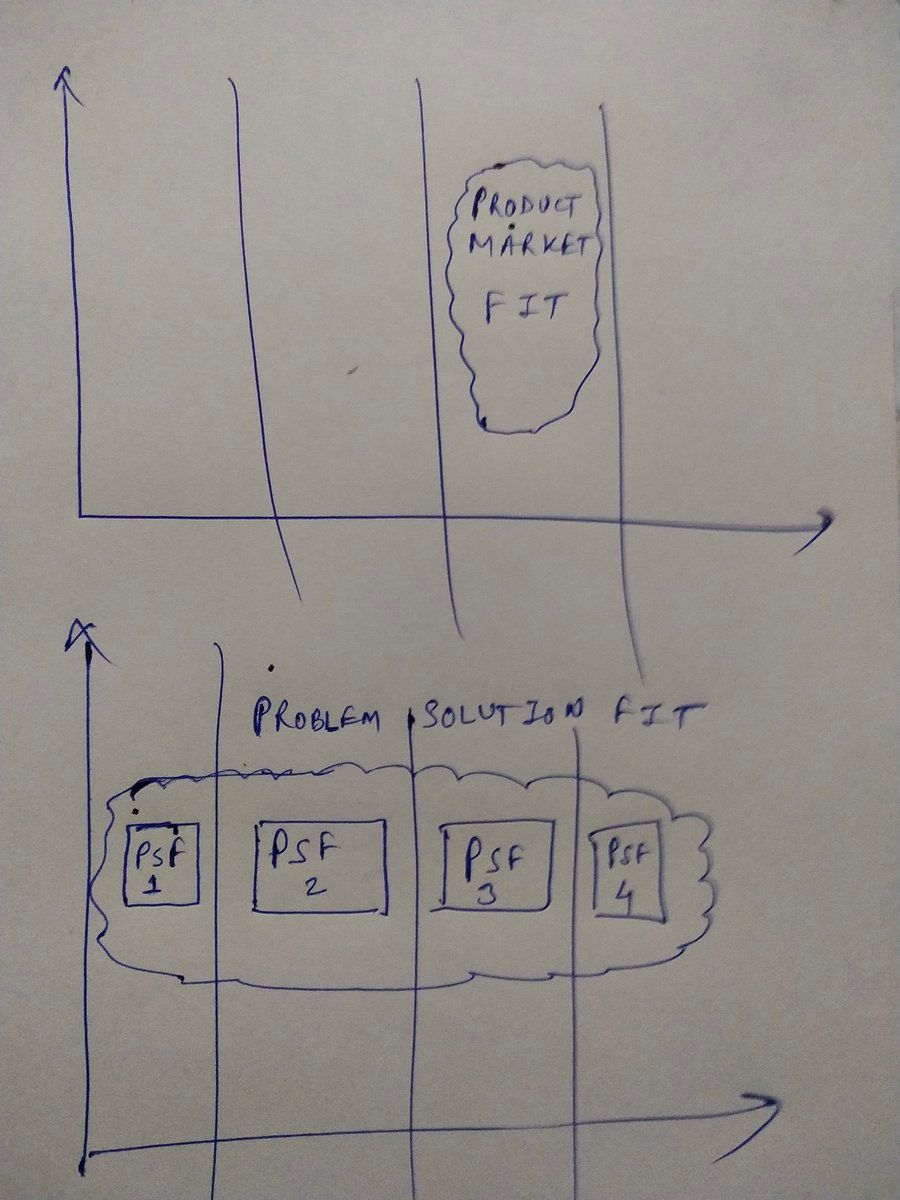 PRODUCT
MARKET
FIT
PROBLEM SOLUTION FIT
PSF
1
PSF
2
PSF
3
PSF
4